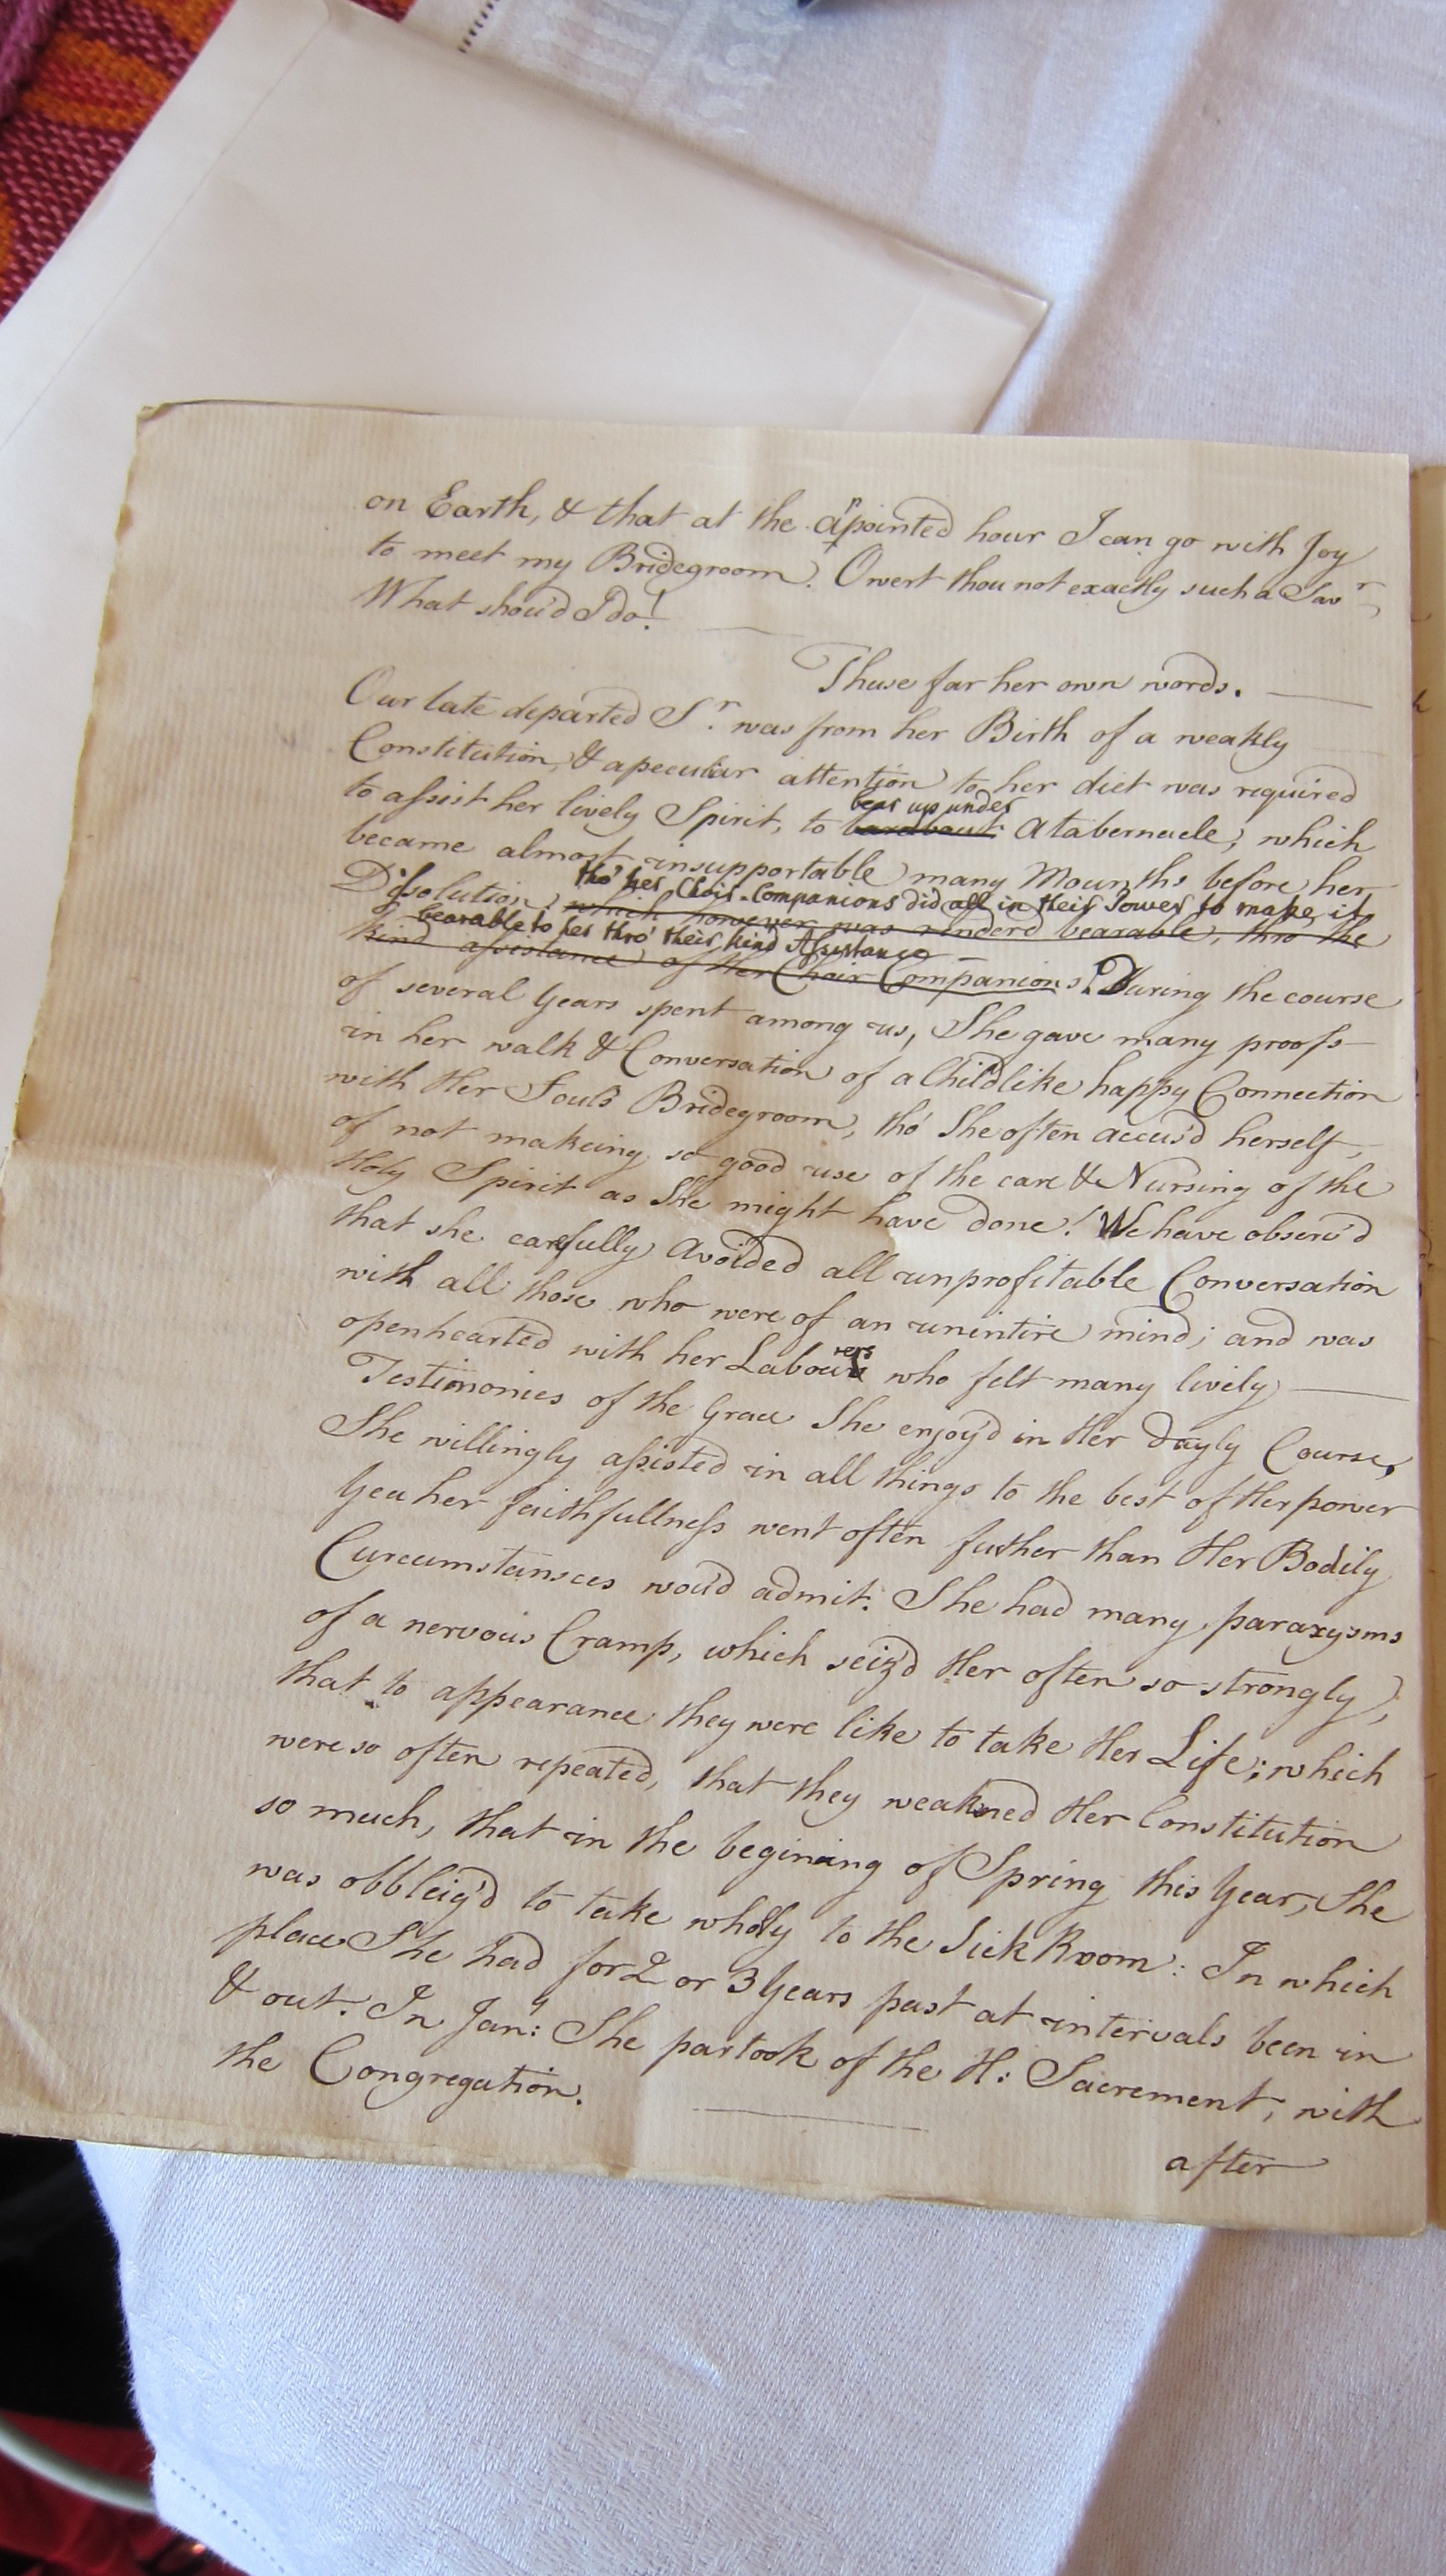 on Earth, & that at the apointed hour I can go with Joy
to meet my Bridegroom. O wert thou not exactly such a Savr
What shou'd I do!
Thuse far her own words.
Our late departed Sr. was from her Birth of a weakly
Constitution, & a peculiar attention to her diet was required
bear up under
to assist her lively Spirit, to bear about a tabernacle, which
became almost insupportable many Mounths before her
tho' her Choir-Companions did all in their Power to make it
Dissolution, which however was renderd bearable, thro the
bearable to her thro' their kind Assistance
kind assistance of Her Choir Companions! During the course
of several Years spent among us, She gave many proofs
in her walk & Conversation of a Childlike happy Connection
with Her Souls Bridegroom, tho' She often accus'd herself
of not makeing so good use of the care & Nursing of the
Holy Spirit as She might have done! We have observ'd
that she carefully avoided all unprofitable Conversation
with all those who were of an unintire mind; and was
rers
openhearted with her Labour who felt many lively
Testimonies of the Grace She enjoy'd in Her dayly Course,
She willingly assisted in all things to the best of Her power
Yea her faithfullness went often futher than Her Bodily
Curcumstansces wou'd admit. She had many paraxysms
of a nervous Cramp, which seiz'd Her often so strongly,
that to appearance they were like to take Her Life; which
were so often repeated, that they weakned Her Constitution
so much, that in the begining of Spring this Year, She
was obbleig'd to take wholy to the Sick Room: In which
place She had for 2 or 3 Years past at intervals been in
& out. In Jany: She partook of the H: Sacrement, with
the Congregation.
after